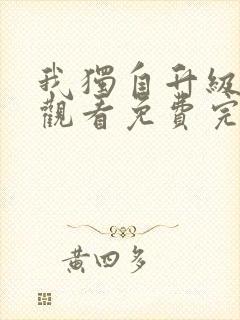 我獨自升級
觀看免費完
黃四多